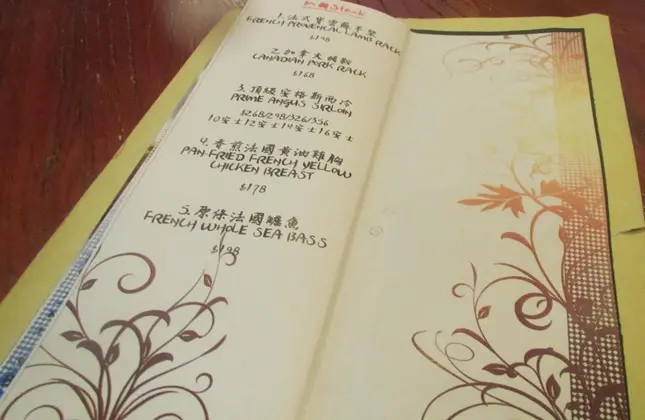 Steak
1. 法式普雲斯羊架
FRENCH PROVENCAL LAMB RACK
$198
2. 加拿大豬鞍
CANADIAN PORK RACK
$168
3. 頂級安格斯西冷
PRIME ANGUS SIRLOIN
$268/298/326/356
10安士12安士14安士16安士
4. 香煎法國黃油雞胸
PAN-FRIED FRENCH YELLOW
CHICKEN BREAST
$178
5. 原條法國鱸魚
FRENCH WHOLE SEA BASS
$198